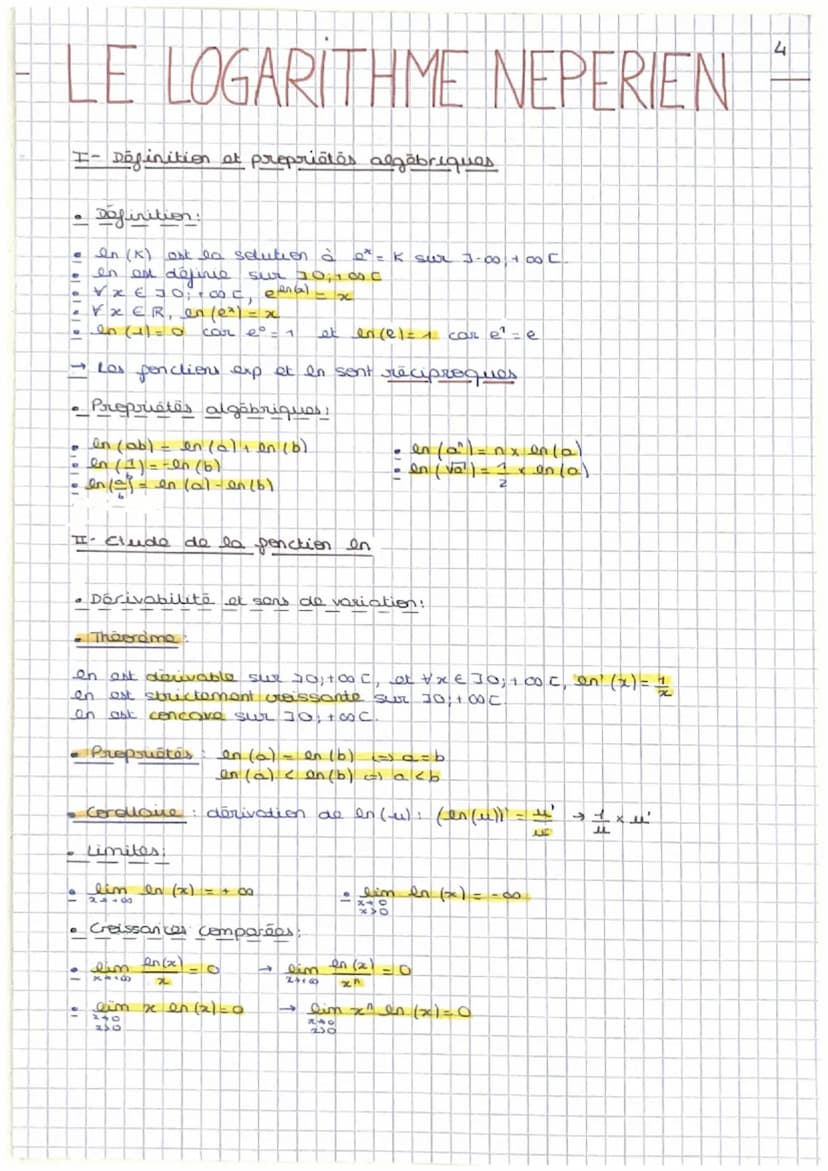 4
- LE LOGARITHME NEPERIEN -
I- Définition et propriétés algébriques
• Définition:
• ln(K) est la solution à eˣ = K sur ]-∞;+∞[.
• ln est définie sur ]0;+∞[
• ∀x ∈ ]0;+∞[, e^ln(x) = x
• ∀x ∈ R, ln(eˣ) = x
• ln(1) = 0 car e⁰ = 1 et ln(e) = 1 car e¹ = e
→ Les fonctions exp et ln sont réciproques
• Propriétés algébriques:
• ln(ab) = ln(a) + ln(b) • ln(aⁿ) = n × ln(a)
• ln(1/b) = -ln(b) • ln(√a) = 1/2 × ln(a)
• ln(a/b) = ln(a) - ln(b)
II- Etude de la fonction ln
• Dérivabilité et sens de variation:
• Théorème:
ln est dérivable sur ]0;+∞[, et ∀x ∈ ]0;+∞[, ln'(x) = 1/x
ln est strictement croissante sur ]0;+∞[.
ln est concave sur ]0;+∞[.
• Propriétés: ln(a) = ln(b) ⇔ a = b
ln(a) < ln(b) ⇔ a < b
• Corollaire: dérivation de ln(u): (ln(u))' = u'/u → 1/u × u'
• Limites:
• lim x→+∞ ln(x) = +∞ • lim x→0 x>0 ln(x) = -∞
• Croissances comparées:
• lim x→+∞ ln(x)/x = 0 → lim x→+∞ ln(x)/xⁿ = 0
• lim x→0 x>0 x ln(x) = 0 → lim x→0 x>0 xⁿ ln(x) = 0